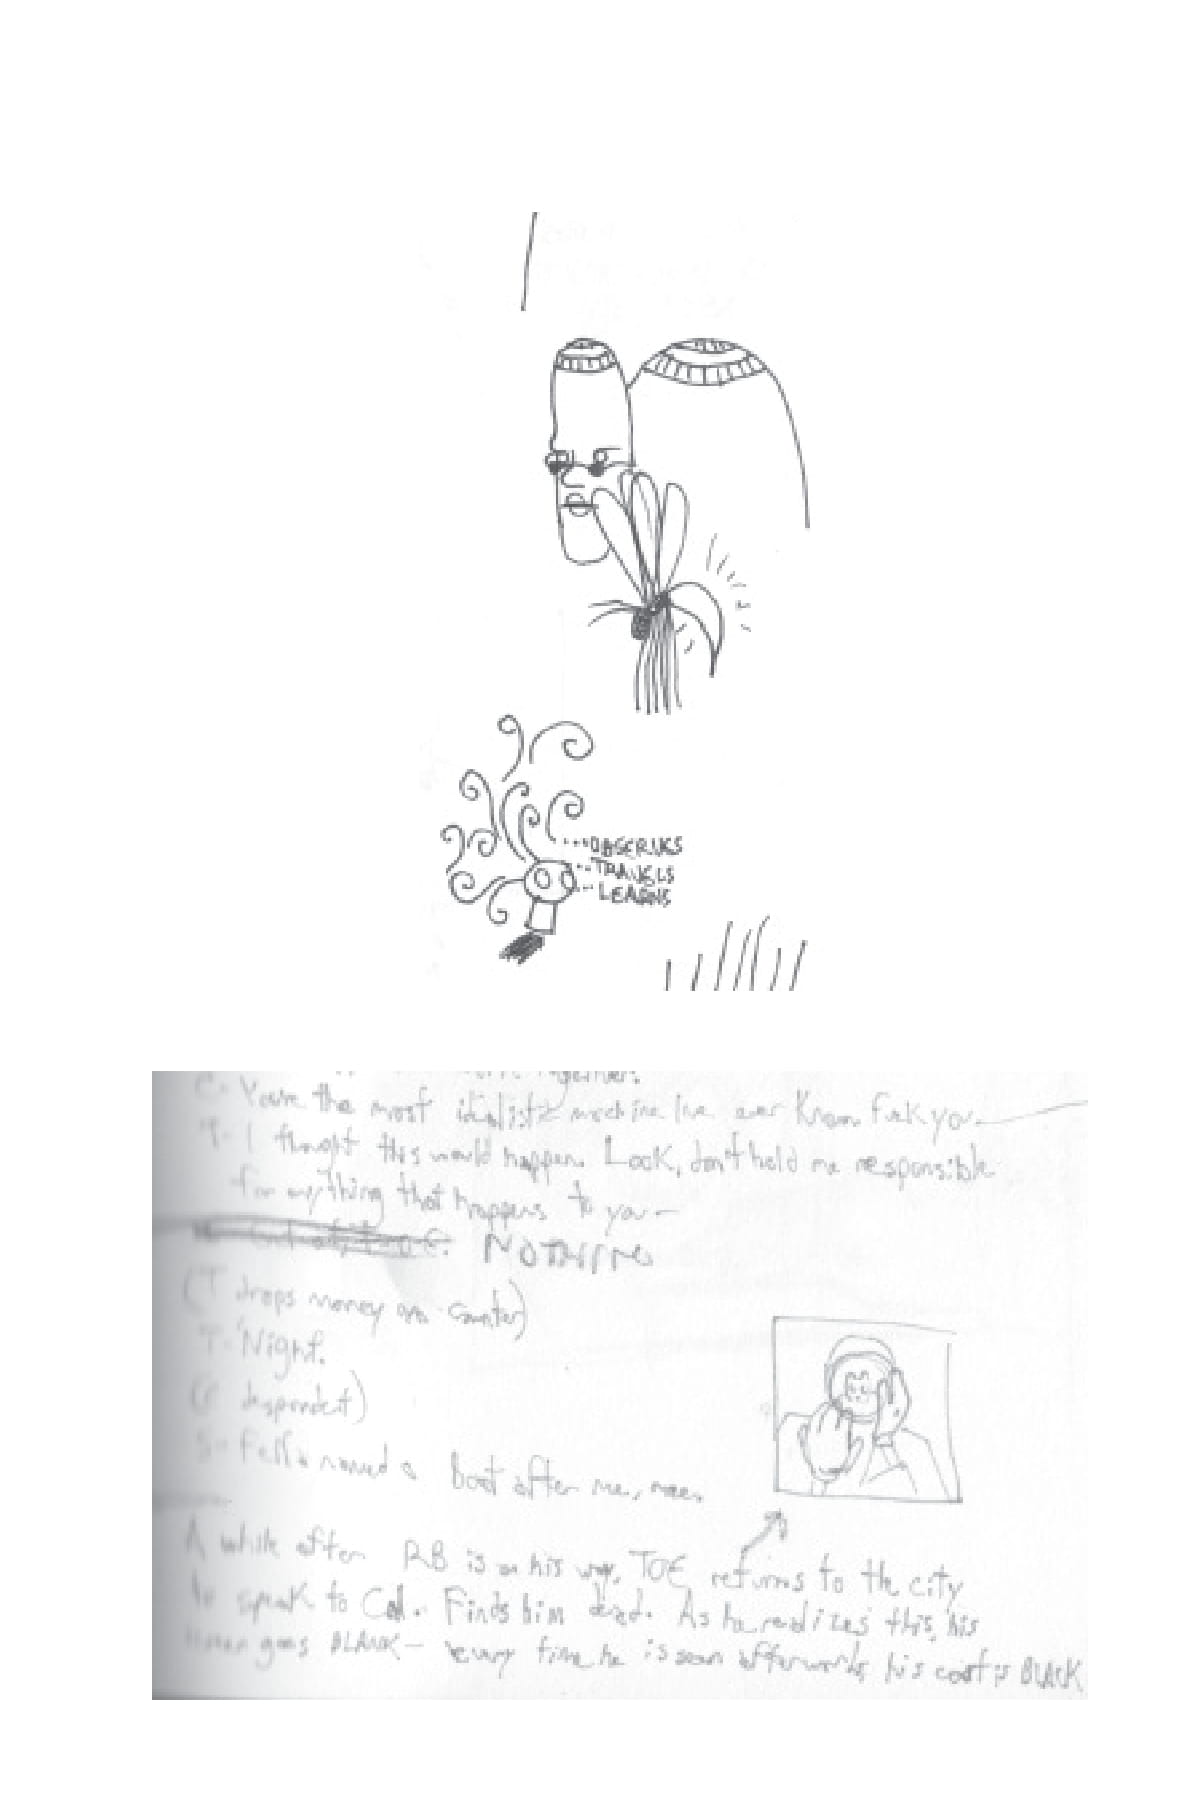 OBSERVES
TRAVELS
LEARNS
together.
C- You're the most idealistic machine I've ever known. Fuk you-
T- I thought this would happen. Look, don't hold me responsible
for anything that happens to you-
NOTHING
(T drops money on counter)
T- 'Night.
(C despondent)
S- Fella named a boat after me, mae.
A while after RB is on his way, TOE returns to the city
to speak to Cal. Finds him dead. As he realizes this, his
goes BLANK- every time he is seen afterwards, his coat is BLACK